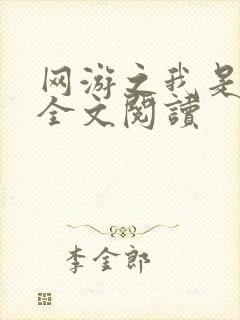 网游之我是
全文閱讀
李金郎